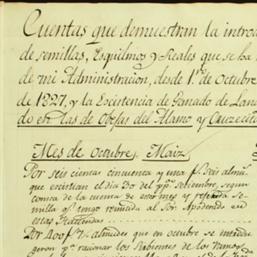 Cuentas que demuestran la introd
de semillas, Esquilmos y Reales que se ha
de mi Administracion, desde 1.º de Octubre
de 1827, y la Existencia de Ganado de Lan
do en las de Obejas del Alamo y Cruzecita
Mes de Octubre, Maiz
Por seis cientas cincuenta y una f.s seis almu.
que existian el dia 30 del p.º Setiembre, segun
consta de la cuenta de ese mes y referida Se
milla q.e tengo remitida al Sor. Apoderado de
estas Haciendas
Por 400 f.s 7 ½ almudes que en octubre se introdu
geron p.a racionar los Rabiones de los ramos